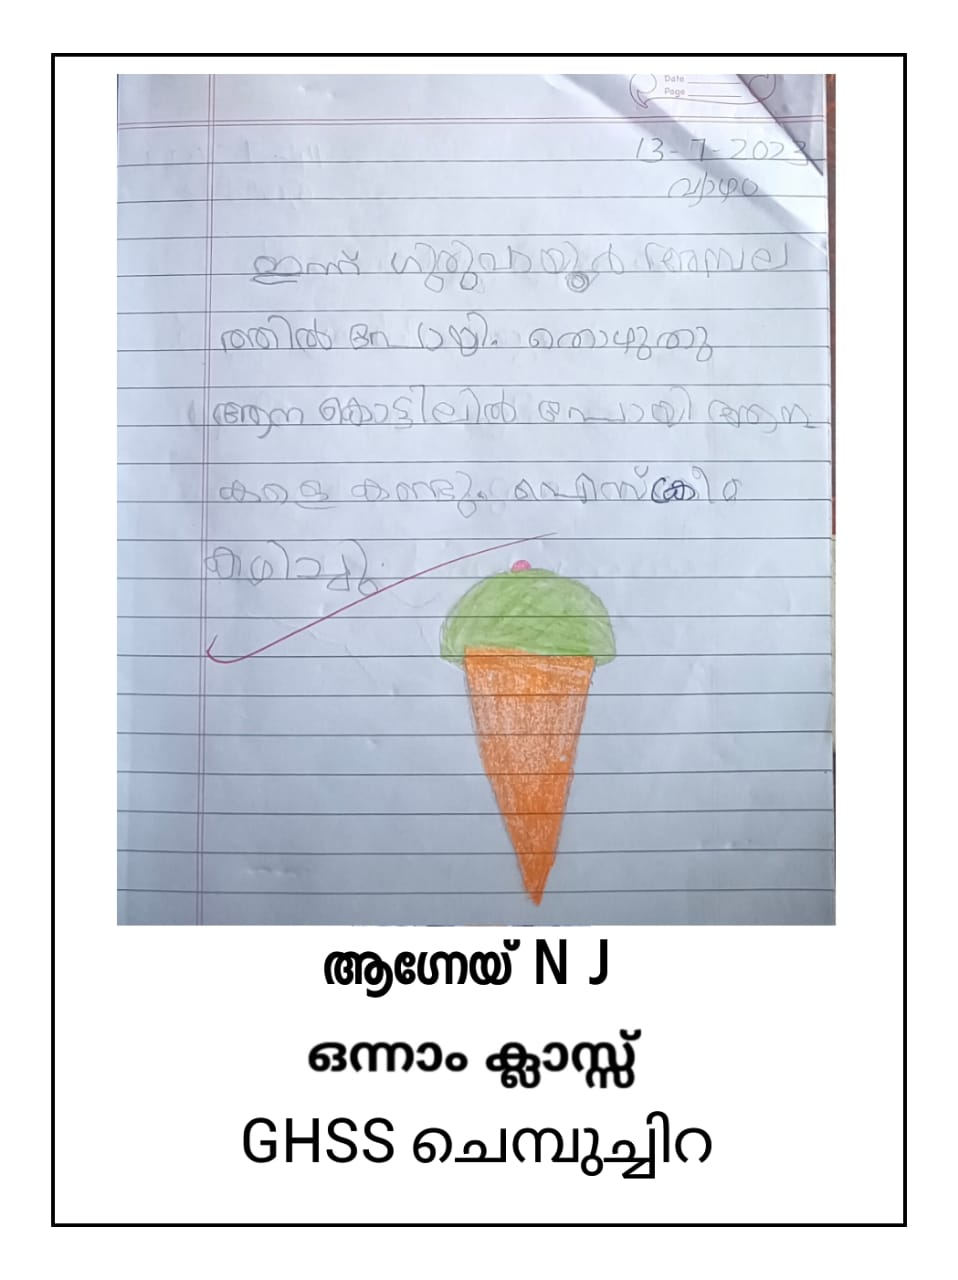 Date
Page
13-7-2023
വ്യാഴം
ഇന്ന് ഗുരുവായൂർ അമ്പല
ത്തിൽ പോയി. തൊഴുതു
ആന കൊട്ടിലിൽ പോയി ആന
കളെ കണ്ടു.
കഴിച്ചു.
ആഗ്നേയ് N J
ഒന്നാം ക്ലാസ്സ്
GHSS ചെമ്പുച്ചിറ